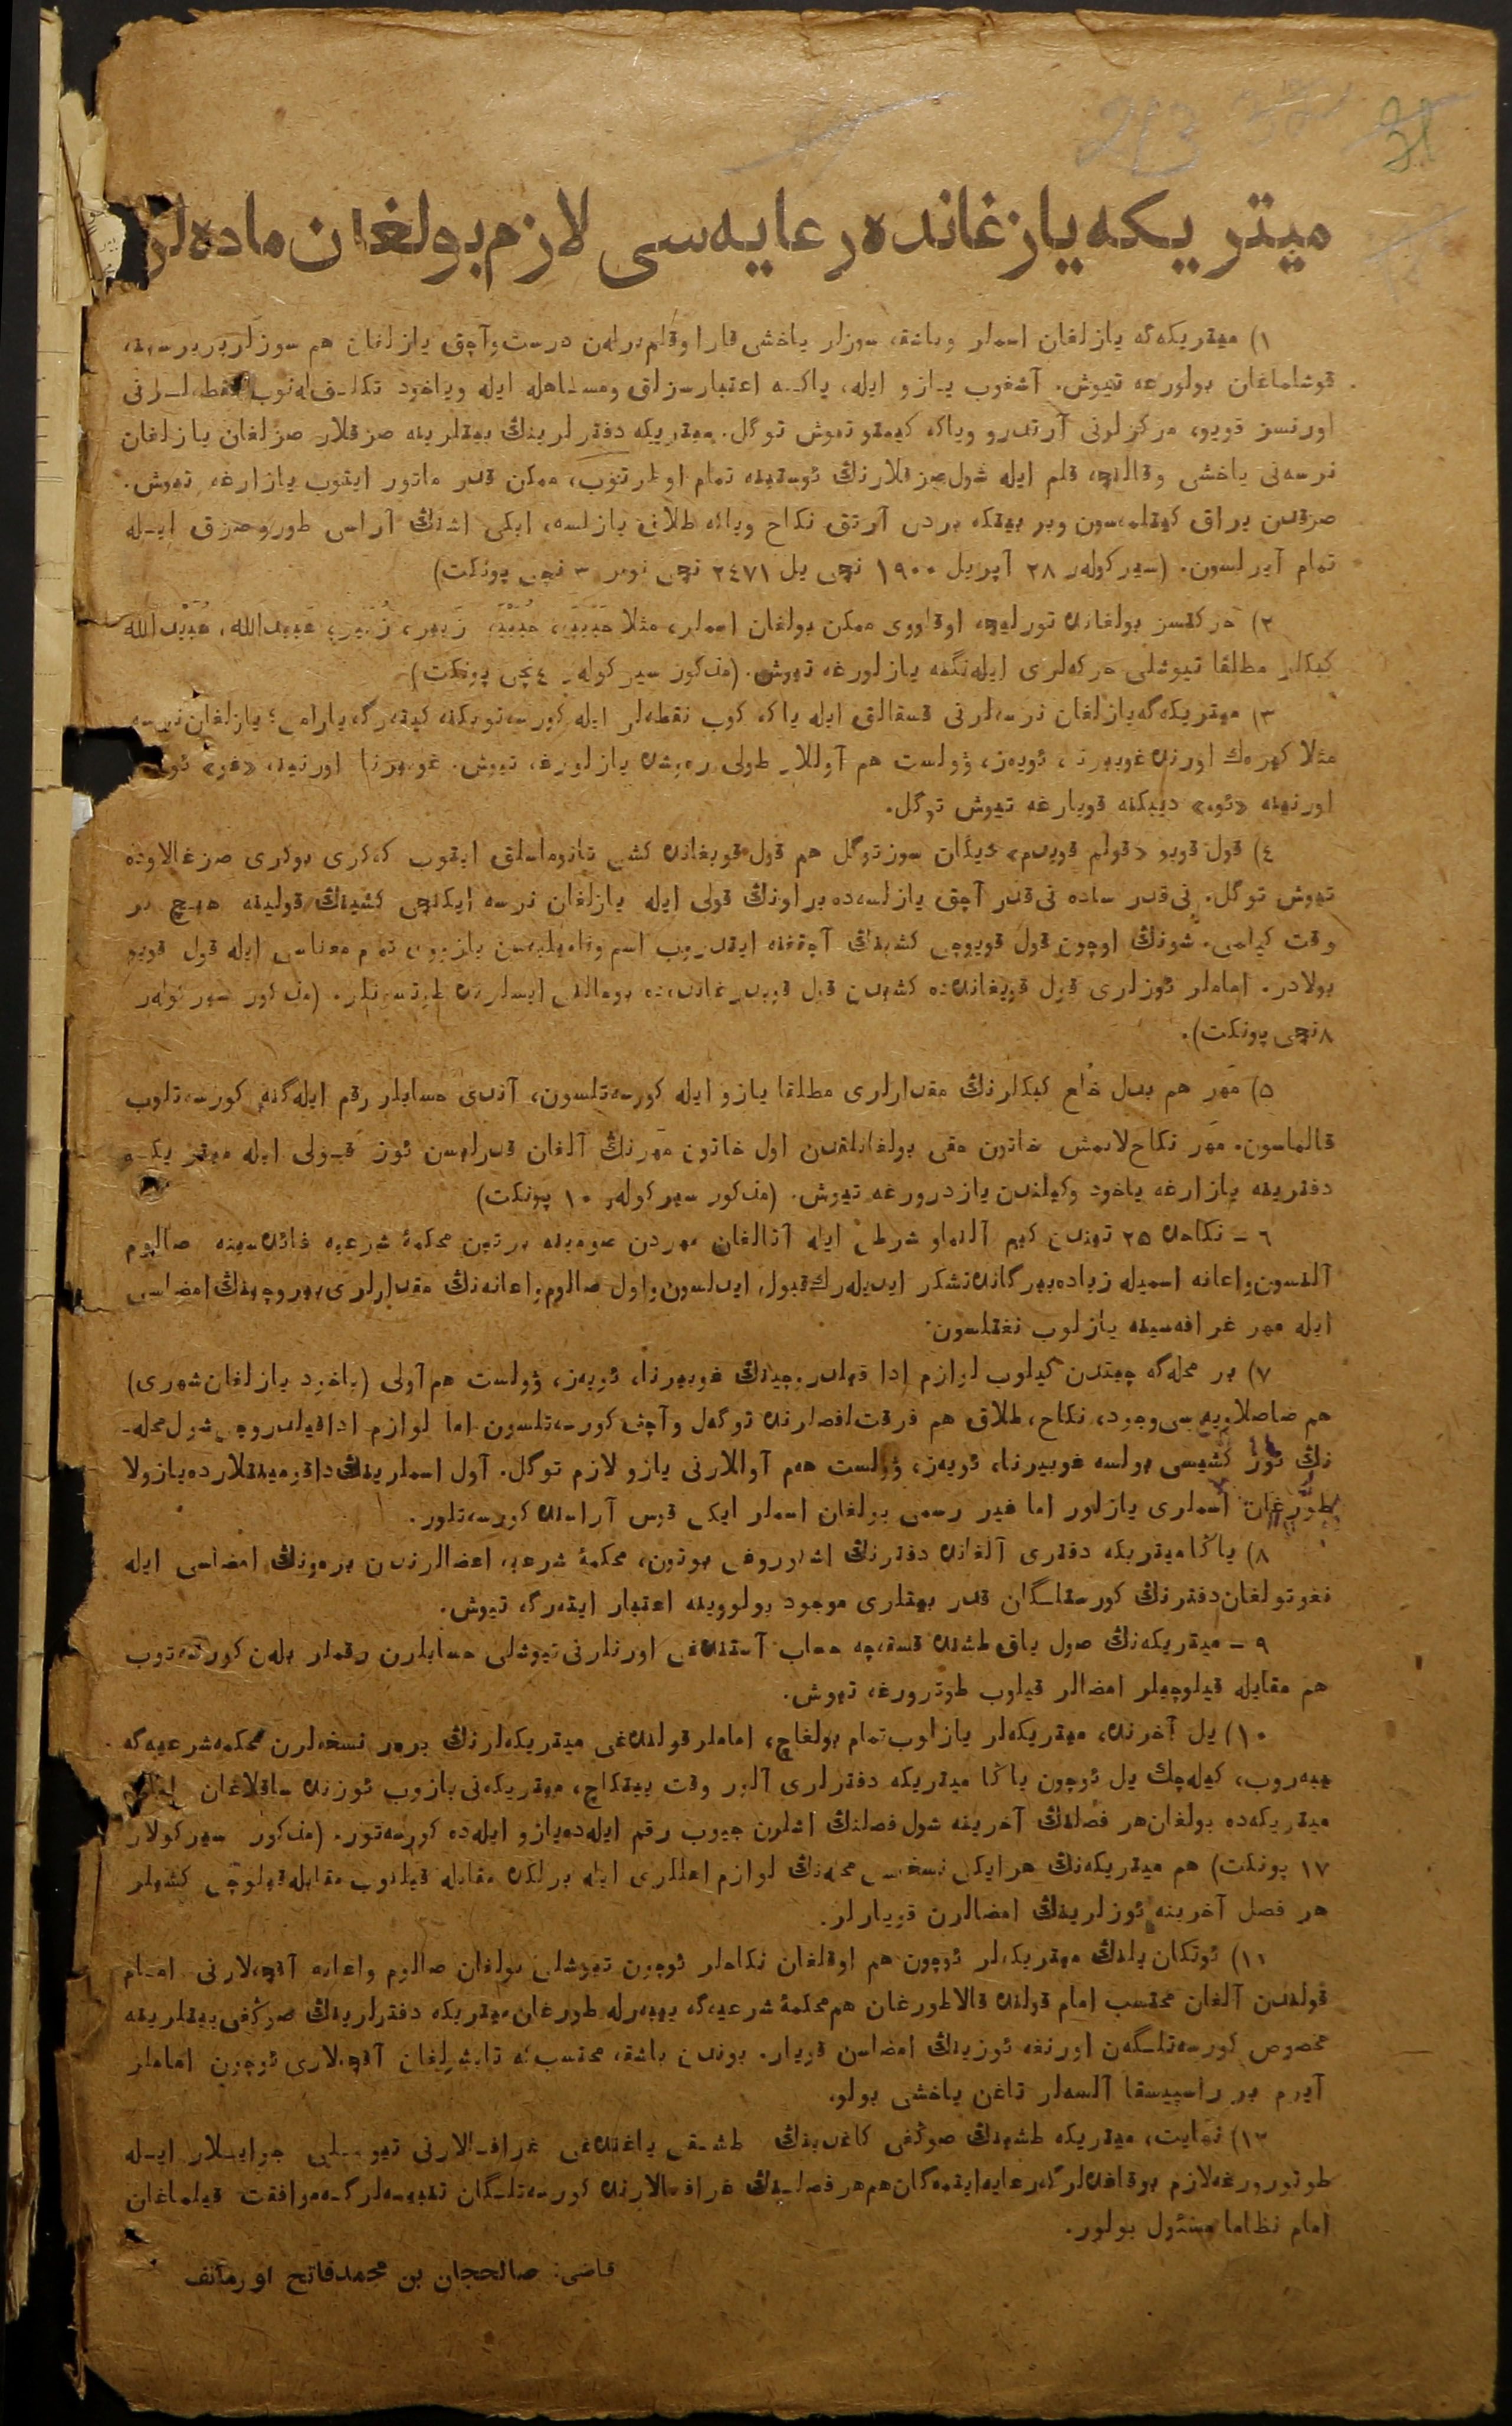 ميتريكه يازغانده رعايه‌سى لازم بولغان ماده‌لر
١) ميتريكه‌گه يازلغان اسملر وباشقه سوزلر ياخشى قارا وقلم برله‌ن درست وآچق يازلغان هم سوزلر بر برسينه
قوشلماغان بولورغه تيوش. آشغوب يازو ايله، ياكه اعتبارسزلق ومساهله ايله وياخود تكلف‌له‌نوب نقطه‌لرنى
اورنسز قويو، مركزلرنى آرتدرو وياكه كيمتو تيوش توگل. ميتريكه دفترلرينڭ بيتلرينه صزقلار صزلغان يازلغان
نرسه‌نى ياخشى وقالنچه قلم ايله شول صزقلارنڭ ئوستينه تمام اولرتوب، ممكن قدر ماتور ايتوب يازارغه تيوش.
صزقدن يراق كيتلمه‌سون وبر بيتكه بردن آرتق نكاح وياكه طلاق يازلسه، ايكى اشنڭ آراسى طورو صزق ايله
تمام آيرلسون. (سيركولهر ٢٨ آپريل ١٩٠٠ نچى يل ٢٤٧١ نچى نومر ٣ نچى پونكت)
٢) حركتسز بولغانده تورليچه اوقلووى ممكن بولغان اسملر، مثلا حَبيبه، حُبَيْبه، زَبير، زُبَيْر، عَبيدالله، عُبَيْدالله
كبكلر مطلقا تيوشلى حركه‌لرى ايله‌نگنه يازلورغه تيوش. (مذكور سيركولهر ٤ نچى پونكت)
٣) ميتريكه‌گه يازلغان نرسه‌لرنى قسقالق ايله ياكه كوب نقطه‌لر ايله كورسه‌توبكنه كيته‌رگه يارامى؛ يازلغان نرسه
مثلا كيره‌ك اورنده غوبيرنا، ئويه‌ز، ۋولست هم آوللار طولى ره‌وشده يازلورغه تيوش. غوبيرنا اورنينه «غو»
اورنينه «ئو» دييكنه قويارغه تيوش توگل.
٤) قول قويو «قولم قويدم» ديگان سوز توگل هم قول قويغانده كشى تانوماسلق ايتوب كه‌كرى بوكرى صزغالاوده
تيوش توگل. نى قدر ساده نى قدر آچق يازلسه‌ده براونڭ قولى ايله يازلغان نرسه ايكنچى كشينڭ قولينه هيچ بر
وقت كيلمى. شونڭ اوچون قول قويوچى كشينڭ آچقغنه ايتدروب اسم وفاميليه‌سن يازووى تمام معناسى ايله قول قويو
بولادر. اماملر ئوزلرى قول قويغانده‌ده كشيدن قول قويدرغانده‌ده بوماللى ايسلرنده طوتسونلر. (مذكور سيركولهر
٨ نچى پونكت).
٥) مَهر هم بدل خُلع كبكلرنڭ مقدارلرى مطلقا يازو ايله كورسه‌تلسون، آندى حسابلر رقم ايله‌گنه كورسه‌تلوب
قالماسون. مَهر نكاح‌لانمش خاتون حقى بولغانلقدن اول خاتون مَهرنڭ آلغان قدرليسن ئوز قولى ايله ميتريكه
دفترينه يازارغه ياخود وكيلندن يازدرورغه تيوش. (مذكور سيركولهر ١٠ پونكت)
٦ – نكاحده ٢٥ تيندن كيم آلنماو شرطى ايله آتالغان مهردن صومينه بر تين محكمهٔ شرعيه فائده‌سينه صالوم
آلنسون واعانه اسميله زياده بيرگانده تشكر ايديله‌رك قبول ايدلسون واول صالوم واعانه‌نڭ مقدارلرى بيروچينڭ امضاسى
ايله مهر غرافه‌سينه يازلوب نغتلسون.
٧) بر محله‌گه چيتدن كيلوب لوازم ادا قيلدروچينڭ غوبيرنا، ئويه‌ز، ۋولست هم آولى (ياخود يازلغان شهرى)
هم خاصلاويه‌سى وجود، نكاح، طلاق هم فرقت فصلرنده توگه‌ل وآچق كورسه‌تلسون. اما لوازم ادا قيلدروچى شول محله‌
نڭ ئوز كشيسى بولسه غوبيرنا، ئويه‌ز، ۋولست هم آوللارنى يازو لازم توگل. آول اسملرينڭ داقومينتلارده يازولا
طورغان اسملرى يازلور اما غير رسمى بولغان اسملر ايكى قوس آراسنده كورسه‌تلور.
٨) ياڭا ميتريكه دفترى آلغانده دفترنڭ اشنوروفى بوتون، محكمهٔ شرعيه اعضالرندن بره‌ونڭ امضاسى ايله
نغوتولغان دفترنڭ كورستلگان قدر بيتلرى موجود بولووينه اعتبار ايته‌رگه تيوش.
٩ – ميتريكه‌نڭ صول ياق طشنده قسقه‌چه حساب آستنده‌غى اورنلرنى تيوشلى حسابلرن رقملر بله‌ن كورسه‌توب
هم مقابله قيلوچيلر امضالر قيلوب طوترورغه تيوش.
١٠) يل آخرنده، ميتريكه‌لر يازلوب تمام بولغاچ، اماملر قولنده‌غى ميتريكه‌لرنڭ برهر نسخه‌لرن محكمهٔ شرعيه‌گه
يبه‌روب، كيله‌چك يل ئوچون ياڭا ميتريكه دفترلرى آلور وقت ييتكاچ، ميتريكه‌نى يازوب ئوزنده ساقلاغان امام
ميتريكه‌ده بولغان هر فصلنڭ آخرينه شول فصلنڭ اشلرن جيوب رقم ايله‌ده يازو ايله‌ده كورسه‌تور. (مذكور سيركولار
١٧ پونكت) هم ميتريكه‌نڭ هر ايكى نسخه‌سى محله‌نڭ لوازم اهللرى ايله برلكده مقابله قيلنوب مقابله قيلوچى كشيلر
هر فصل آخرينه ئوزلرينڭ امضالرن قويارلر.
١١) ئوتكان يلنڭ ميتريكه‌لر ئوچون هم اوقلغان نكاحلر ئوچون تيوشلى بولغان صالوم واعانه آقچه‌لارنى امام
قولندن آلغان محتسب امام قولنده قالاطورغان هم محكمهٔ شرعيه‌گه يبه‌رله طورغان ميتريكه دفترلرينڭ صوڭغى بيتلرينه
مخصوص كورسه‌تلگه‌ن اورنغه ئوزينڭ امضاسن قويار. بوندن باشقه محتسب‌كه تابشرلغان آقچه‌لارى ئوچون اماملر
آيرم بر راسپيسقا آلسه‌لر تاغن ياخشى بولو.
١٢) نهايت، ميتريكه طشينڭ صوڭغى كاغدينڭ طشقى ياغنده‌غى غرافالارنى تيوشلى جوابلار ايله
طوتورورغه لازم بو قاعده‌لرگه رعايه ايتمه‌گان هم هر فصلنڭ غرافالارنده كورسه‌تلگان تنبيه‌لرگه موافقت قيلماغان
امام نظاما مسئول بولور.
قاضى: صالحجان بن محمدفاتح اورمانف